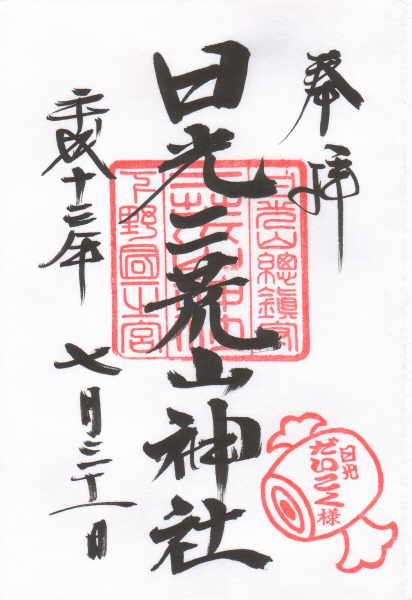 奉拝
日光二荒山神社
平成十三年
七月三十一日
日光山總鎮守
下野國一宮
日光
だいこく様